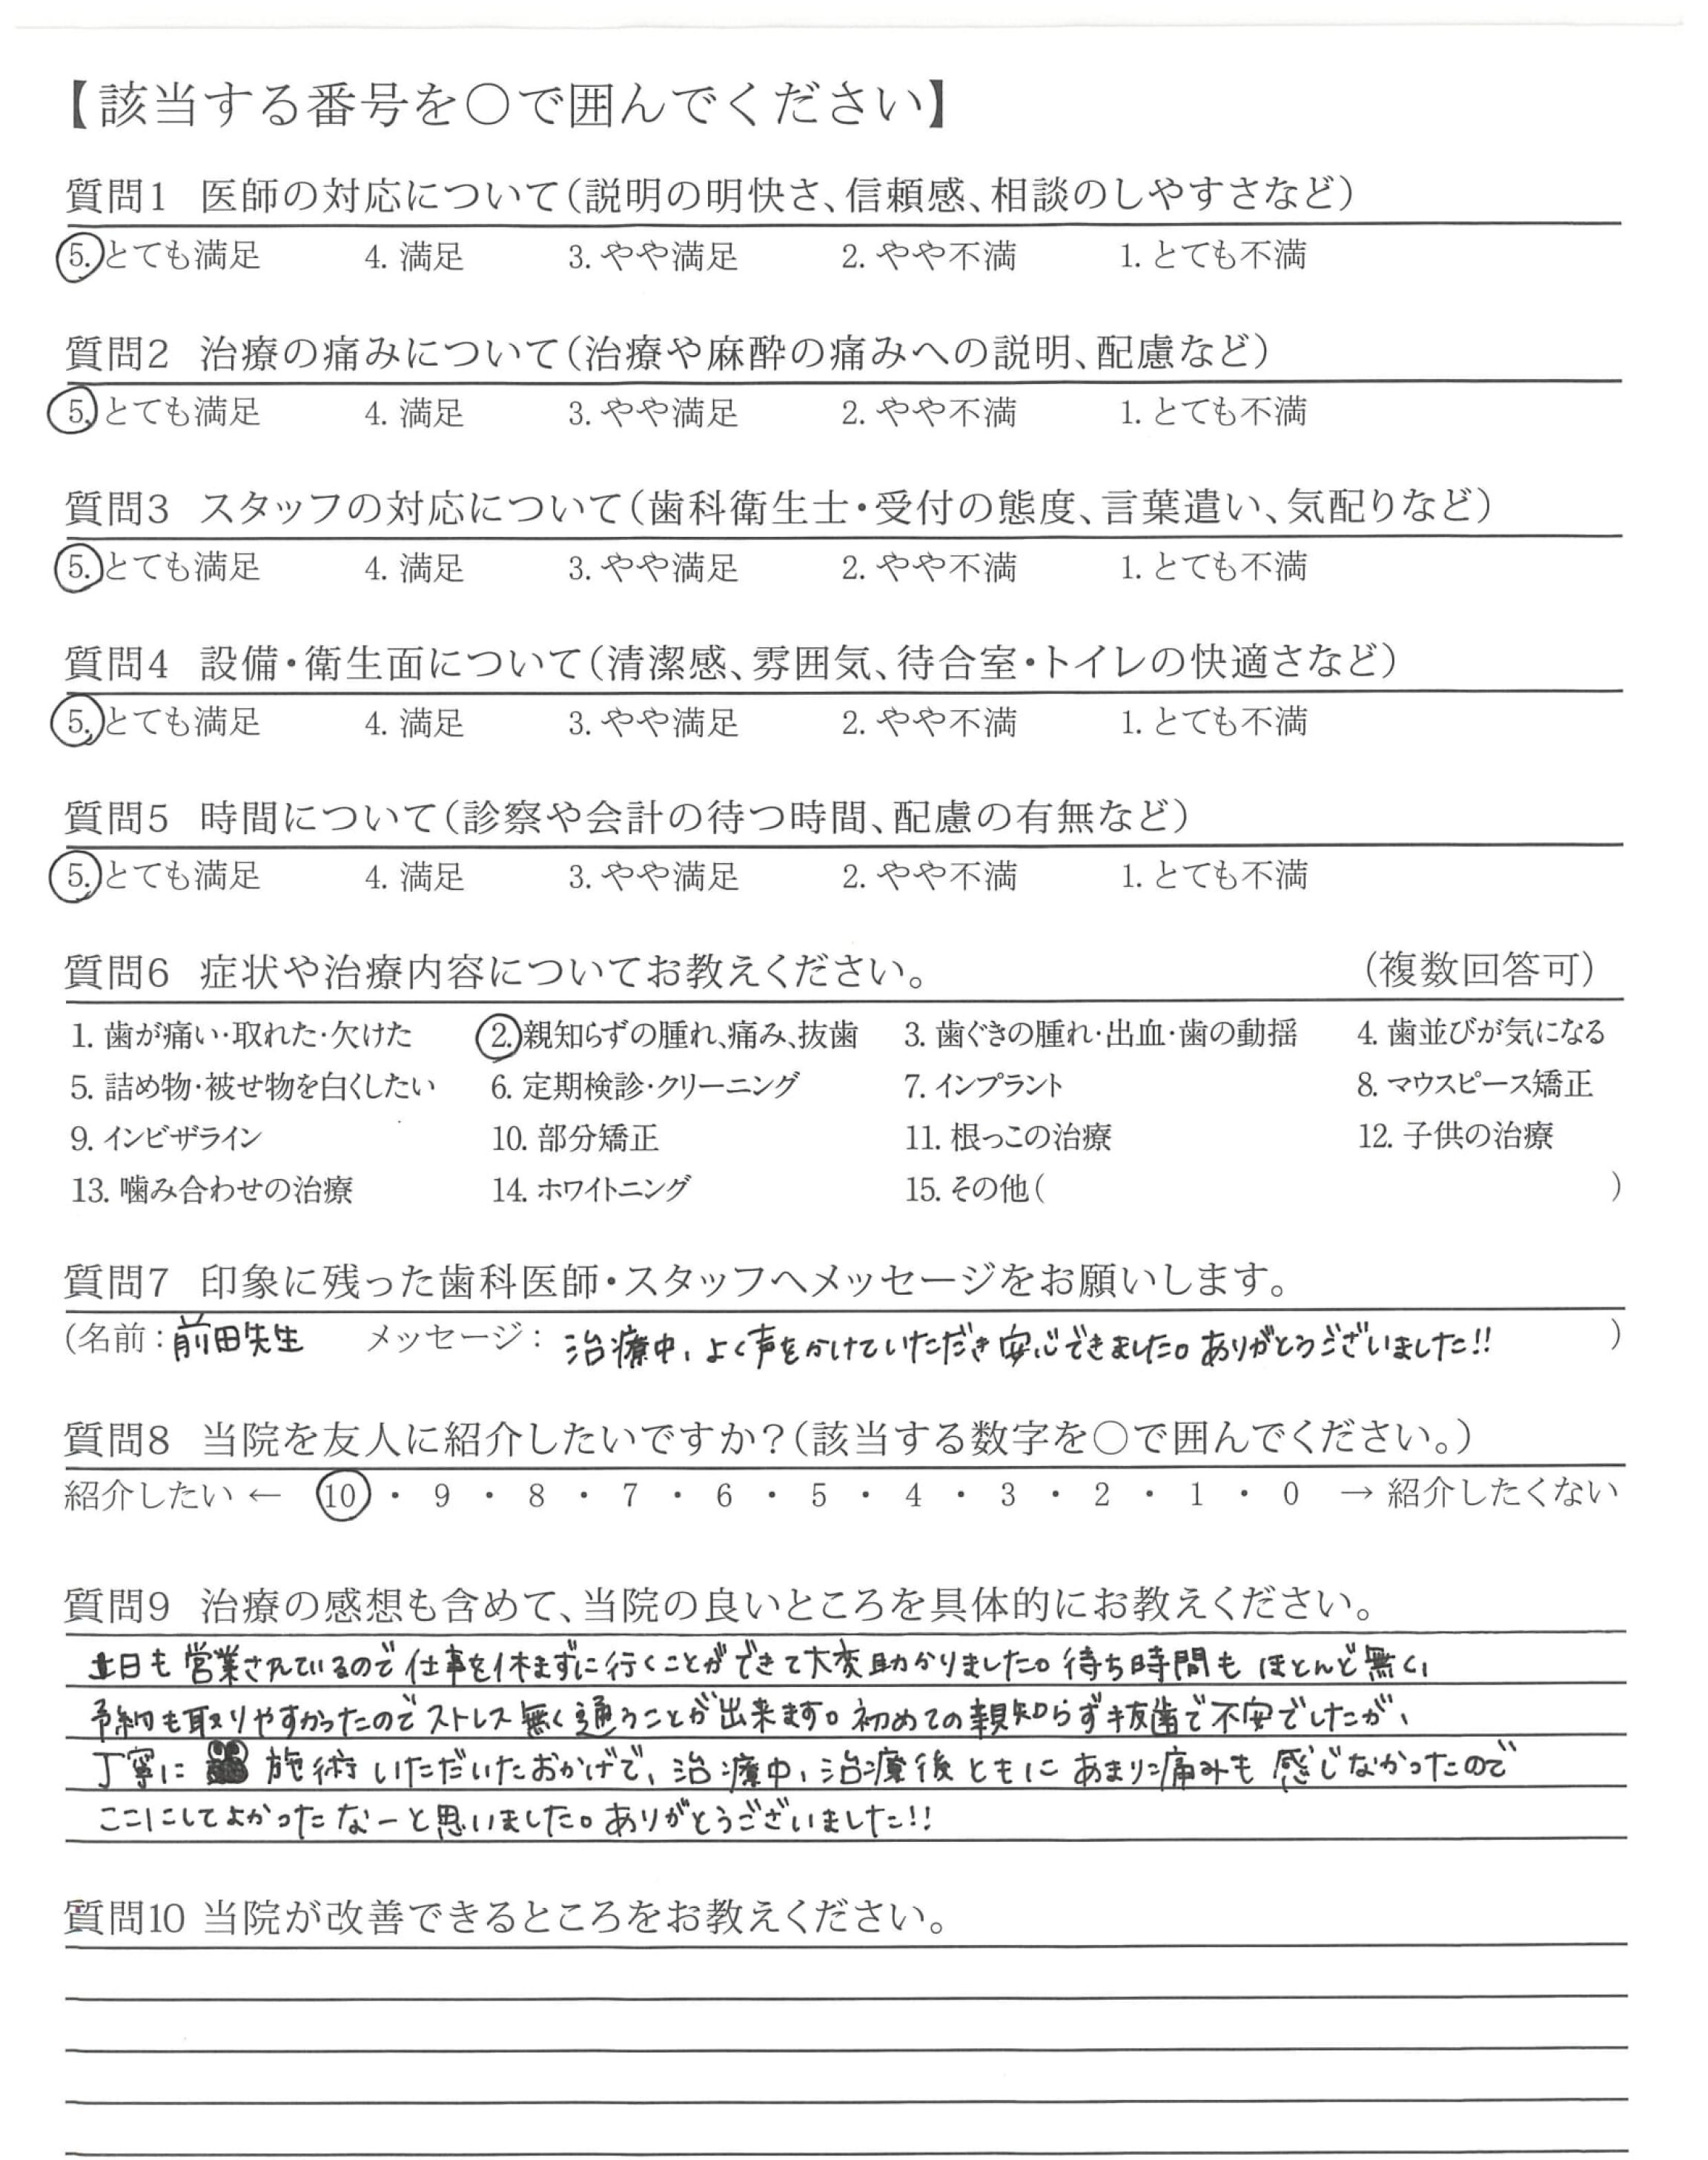 【該当する番号を○で囲んでください】
質問1 医師の対応について(説明の明快さ、信頼感、相談のしやすさなど)
5. とても満足 4. 満足 3. やや満足 2. やや不満 1. とても不満
質問2 治療の痛みについて(治療や麻酔の痛みへの説明、配慮など)
5. とても満足 4. 満足 3. やや満足 2. やや不満 1. とても不満
質問3 スタッフの対応について(歯科衛生士・受付の態度、言葉遣い、気配りなど)
5. とても満足 4. 満足 3. やや満足 2. やや不満 1. とても不満
質問4 設備・衛生面について(清潔感、雰囲気、待合室・トイレの快適さなど)
5. とても満足 4. 満足 3. やや満足 2. やや不満 1. とても不満
質問5 時間について(診察や会計の待つ時間、配慮の有無など)
5. とても満足 4. 満足 3. やや満足 2. やや不満 1. とても不満
質問6 症状や治療内容についてお教えください。 (複数回答可)
1. 歯が痛い・取れた・欠けた 2. 親知らずの腫れ、痛み、抜歯 3. 歯ぐきの腫れ・出血・歯の動揺 4. 歯並びが気になる
5. 詰め物・被せ物を白くしたい 6. 定期検診・クリーニング 7. インプラント 8. マウスピース矯正
9. インビザライン 10. 部分矯正 11. 根っこの治療 12. 子供の治療
13. 噛み合わせの治療 14. ホワイトニング 15. その他( )
質問7 印象に残った歯科医師・スタッフへメッセージをお願いします。
(名前:前田先生 メッセージ: 治療中、よく声をかけていただき安心できました。ありがとうございました!! )
質問8 当院を友人に紹介したいですか?(該当する数字を○で囲んでください。)
紹介したい ← 10 ・ 9 ・ 8 ・ 7 ・ 6 ・ 5 ・ 4 ・ 3 ・ 2 ・ 1 ・ 0 → 紹介したくない
質問9 治療の感想も含めて、当院の良いところを具体的にお教えください。
土日も営業されているので仕事を休まずに行くことができて大変助かりました。待ち時間もほとんど無く、
予約も取りやすかったのでストレス無く通うことが出来ます。初めての親知らず抜歯で不安でしたが、
丁寧に 施術いただいたおかげで、治療中、治療後ともにあまり痛みも感じなかったので
ここにしてよかったなーと思いました。ありがとうございました!!
質問10 当院が改善できるところをお教えください。